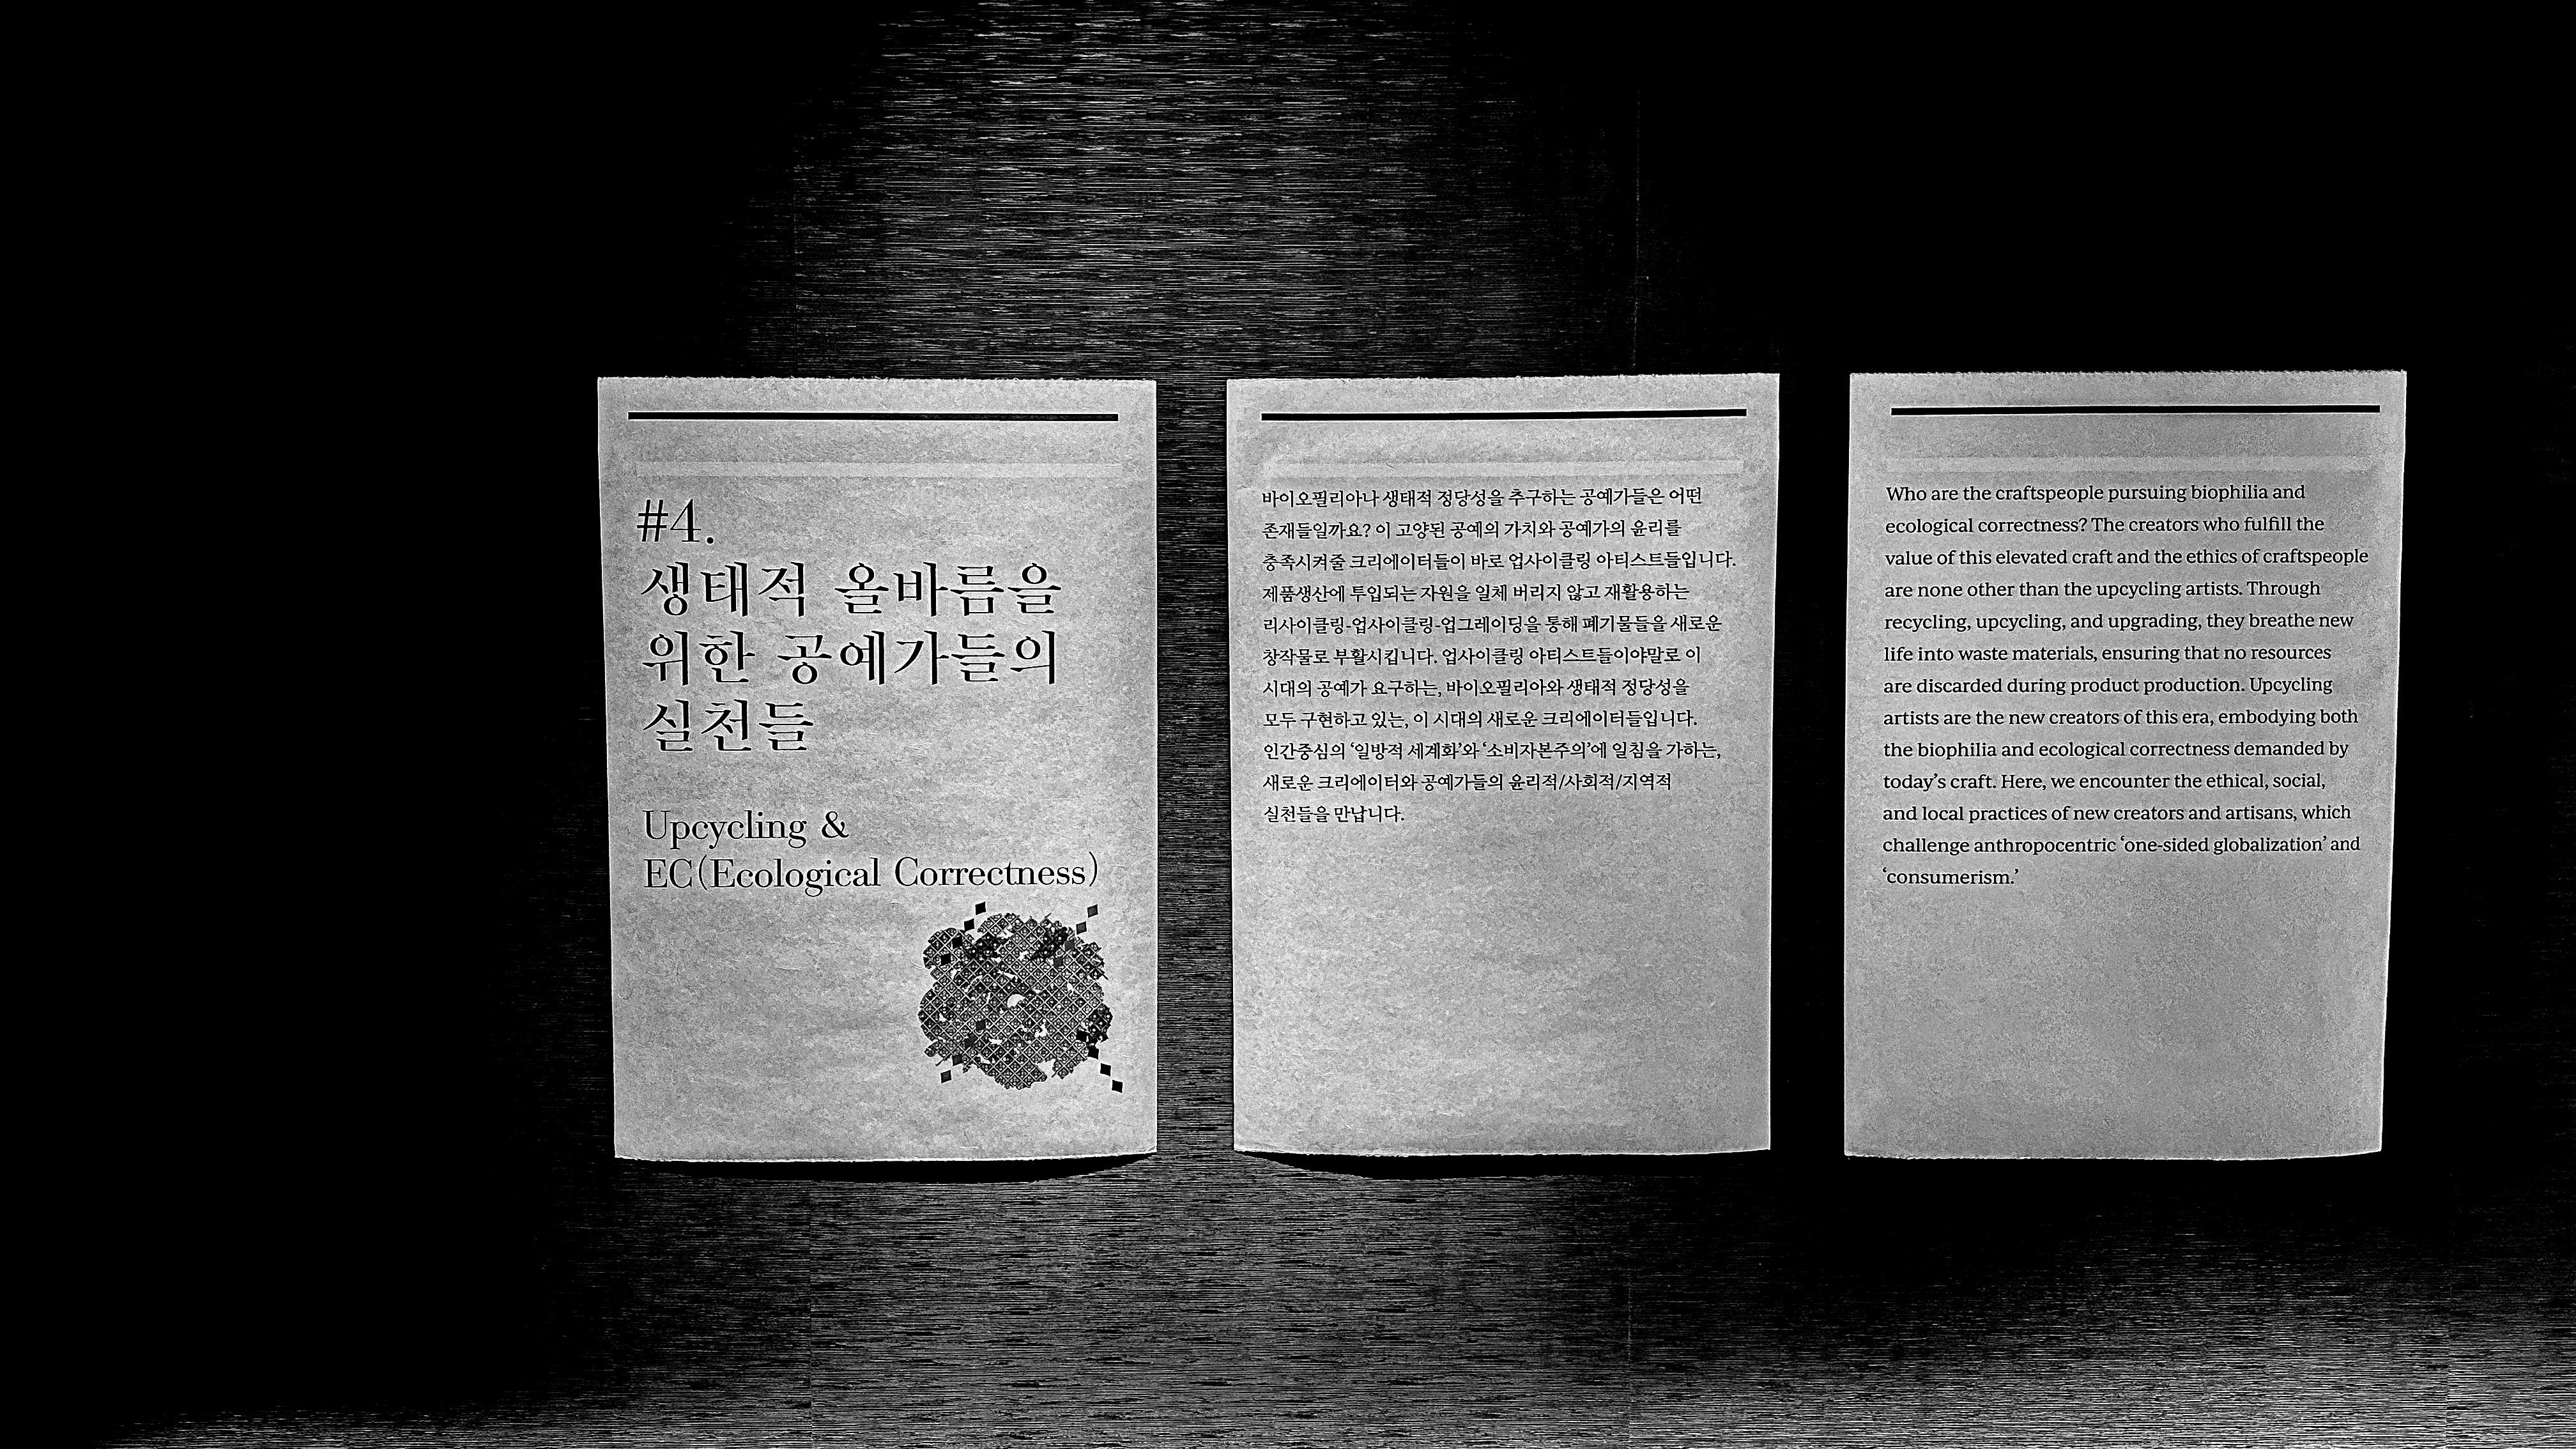 #4.
생태적 올바름을
위한 공예가들의
실천들
Upcycling &
EC(Ecological Correctness)
바이오필리아나 생태적 정당성을 추구하는 공예가들은 어떤
존재들일까요? 이 고양된 공예의 가치와 공예가의 윤리를
충족시켜줄 크리에이터들이 바로 업사이클링 아티스트들입니다.
제품생산에 투입되는 자원을 일체 버리지 않고 재활용하는
리사이클링-업사이클링-업그레이딩을 통해 폐기물들을 새로운
창작물로 부활시킵니다. 업사이클링 아티스트들이야말로 이
시대의 공예가 요구하는, 바이오필리아와 생태적 정당성을
모두 구현하고 있는, 이 시대의 새로운 크리에이터들입니다.
인간중심의 ‘일방적 세계화’와 ‘소비자본주의’에 일침을 가하는,
새로운 크리에이터와 공예가들의 윤리적/사회적/지역적
실천들을 만납니다.
Who are the craftspeople pursuing biophilia and
ecological correctness? The creators who fulfill the
value of this elevated craft and the ethics of craftspeople
are none other than the upcycling artists. Through
recycling, upcycling, and upgrading, they breathe new
life into waste materials, ensuring that no resources
are discarded during product production. Upcycling
artists are the new creators of this era, embodying both
the biophilia and ecological correctness demanded by
today’s craft. Here, we encounter the ethical, social,
and local practices of new creators and artisans, which
challenge anthropocentric ‘one-sided globalization’ and
‘consumerism.’